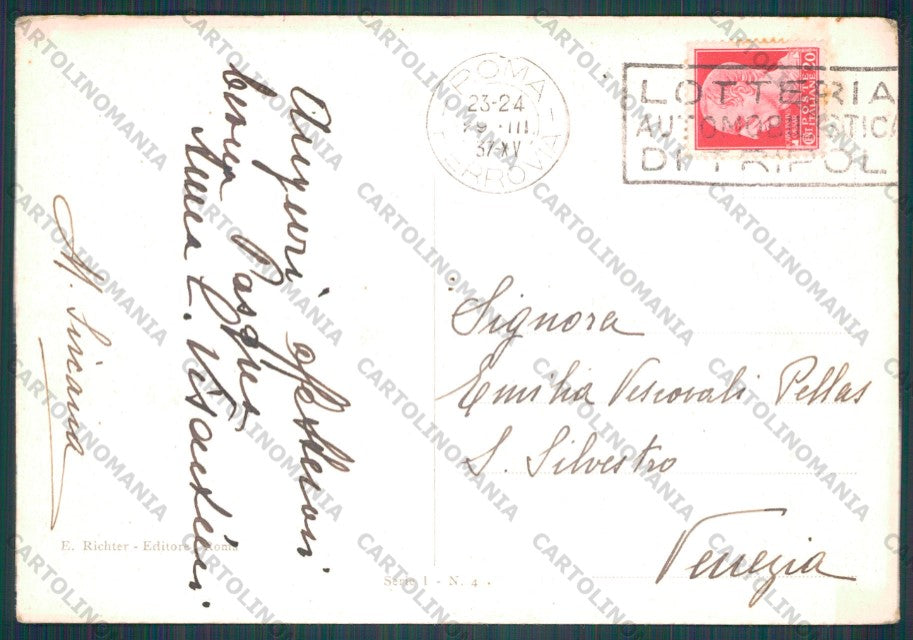 ROMA
23-24
29 III
37-XV
FERROVIA
LOTTERIA
AUTOMOBILISTICA
DI TRIPOLI
POSTE ITALIANE
20
Auguri affettuosi
buona Pasqua
Anna E.
M. Siriana
Signora
Emilia Vescovali Pellas
S. Silvestro
Venezia
E. Richter - Editore - Roma
Serie I - N. 4
CARTOLINOMANIA